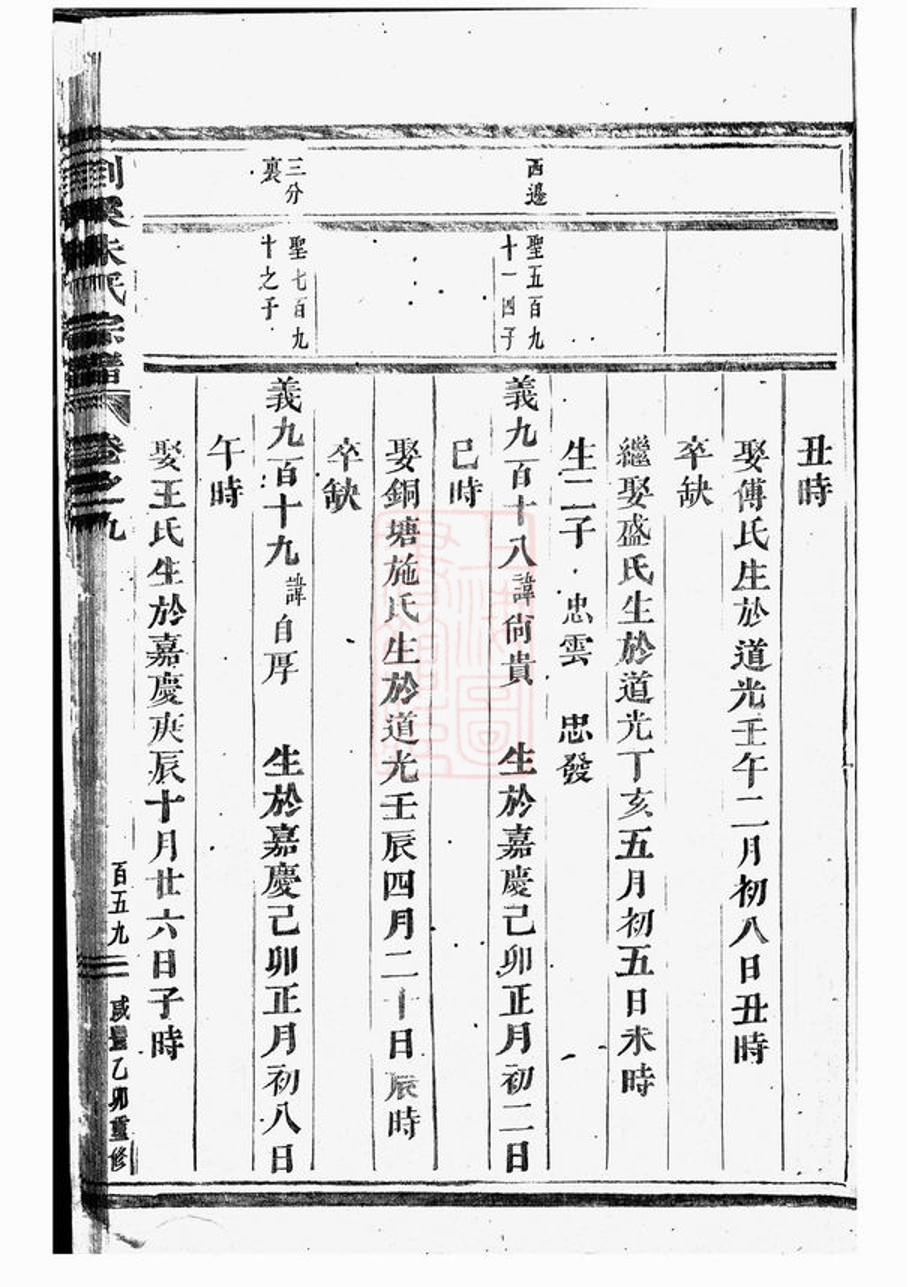 丑時
娶傅氏生於道光壬午二月初八日丑時
卒缺
繼娶盛氏生於道光丁亥五月初五日未時
生二子 忠雲 忠發
西邊
聖五百九
十一四子
義九百十八諱尙貴 生於嘉慶己卯正月初二日
巳時
娶銅塘施氏生於道光壬辰四月二十日辰時
卒缺
三分
裏
聖七百九
十之子
義九百十九諱自厚 生於嘉慶己卯正月初八日
午時
娶王氏生於嘉慶庚辰十月廿六日子時
朱氏宗譜 卷之九
百五九
咸豐乙卯重修